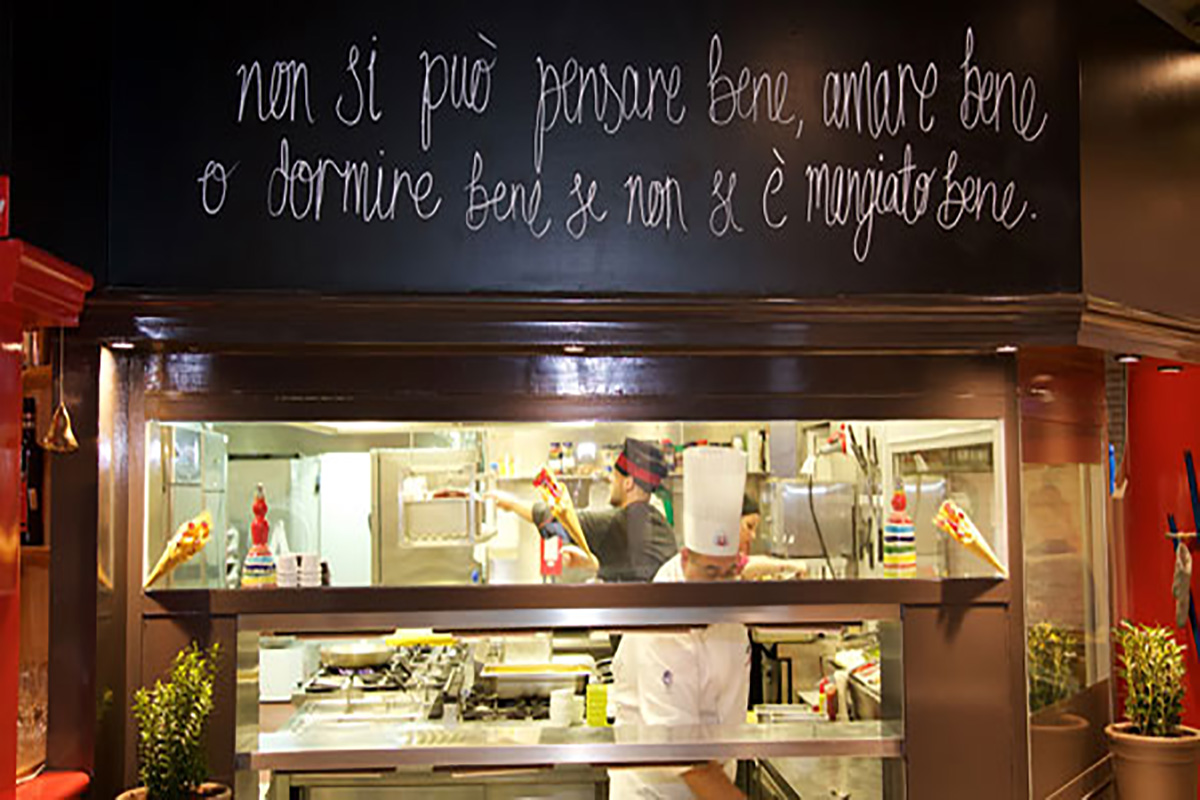 non si può pensare bene, amare bene
o dormire bene se non si è mangiato bene.